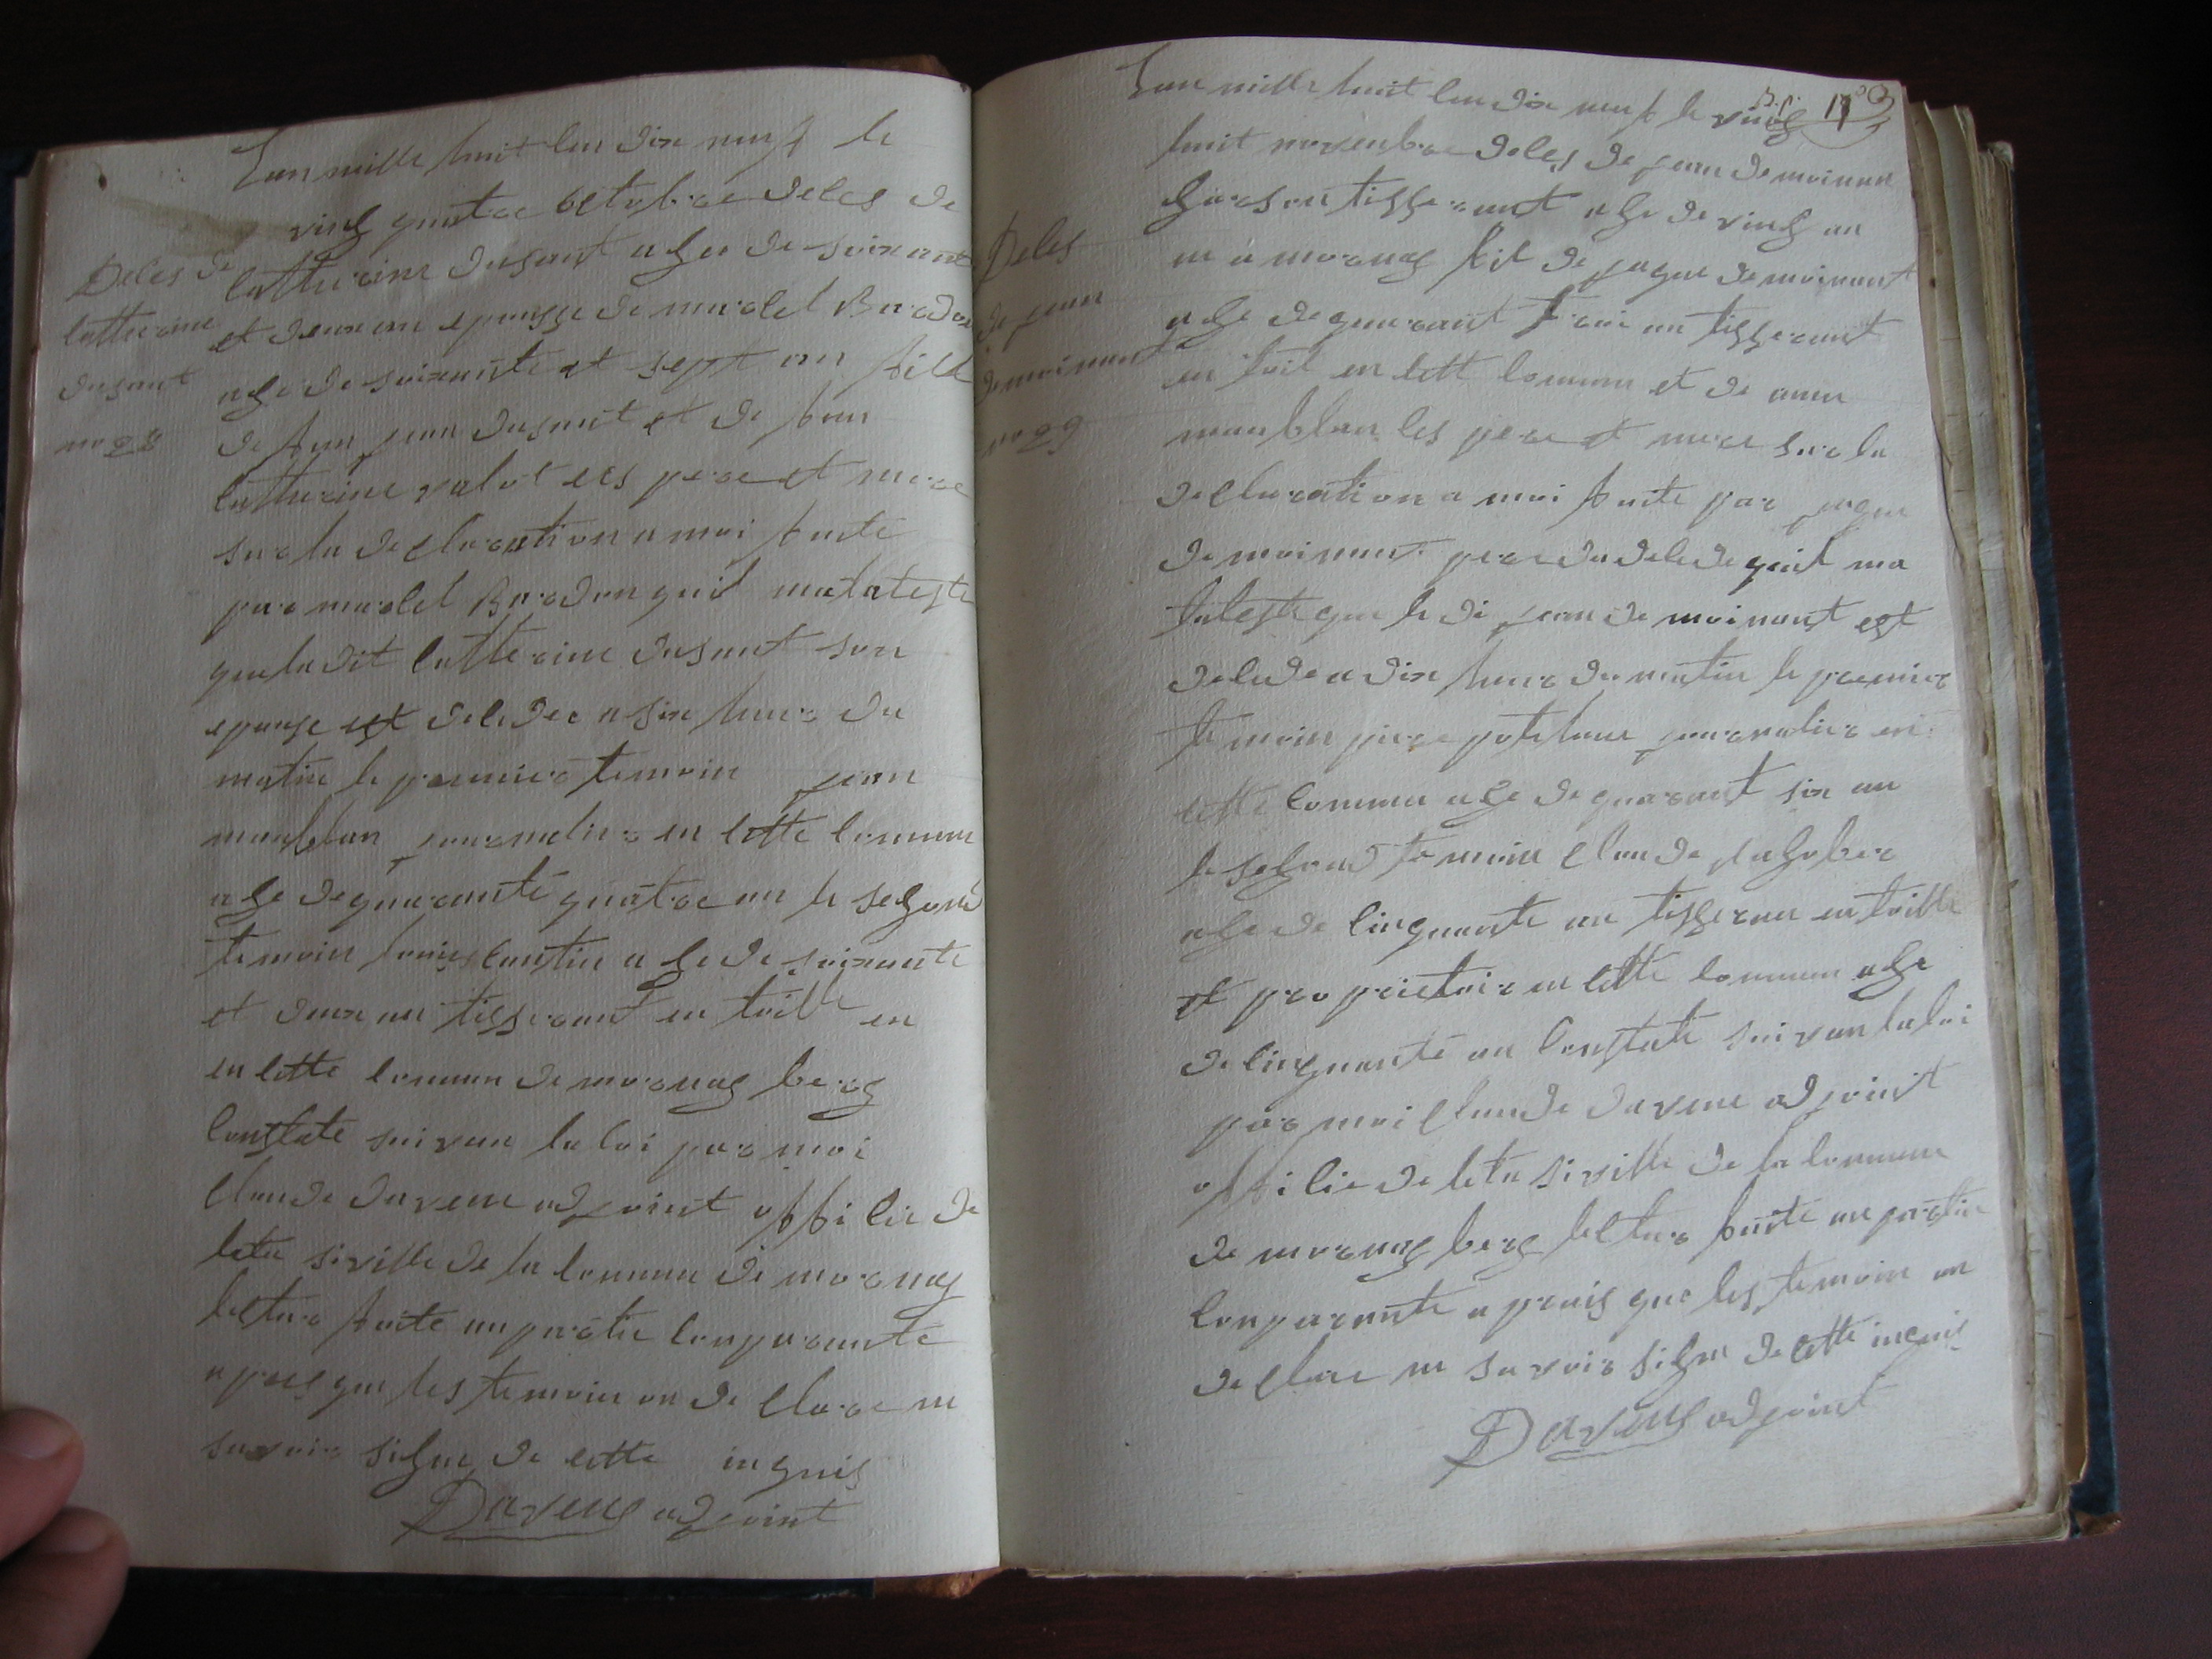 Lan mille huit cen dix neuf le
ving quatre octobre deces de
Deces de
catterine
dusant
no 28
catterine dusant agee de soixante
et deux an epousse de marcel Bardon
age de soixante et sept an fille
de feu jean dusant et de feu
catterine valot ces pere et mere
sur la declaration a moi faite
par marcel Bardon quil ma ateste
que la dit catterine dusant son
epouse est decedee a six heure du
matin le premier temoin jean
monblan journalier en cette commune
age de quarante quatre an le segond
temoin louis cantin age de soixante
et deux an tisserant en toille en
en cette commun de mornag berg
constate suivan la loi par moi
claude daveue adjoint officie de
leta siville de la commun de mornag
lecture faite au partie comparante
apres que les temoin on declare ne
savoir signe de cette inquis
Daveue adjoint
Lan mille huit cen dix neuf le ving
huit novenbre deces de jean demoinant
Deces
de jean
demoinant
no 29
garson tisserant age de ving an
ne a mornag fil de jaque demoinant
age de quarant troi an tisserant
en toil en cett commun et de anne
monblan ces pere et mere sur la
declaration a moi faite par jaque
demoinant pere du decede quil ma
ateste que le di jean demoinant est
decede a dix heure du matin le premier
temoin piere journalier en
cette commun age de quarant six an
le segond temoin claude
age de cinquante an tisseran en toille
et proprietaire en cette commun age
de cinquante an constate suivan la loi
par moi claude daveue adjoint
officie de leta siville de la commune
de mornag berg lecture faite au partie
comparante apreis que les temoin on
declare ne savoir signe de cette inquis
Daveue adjoint